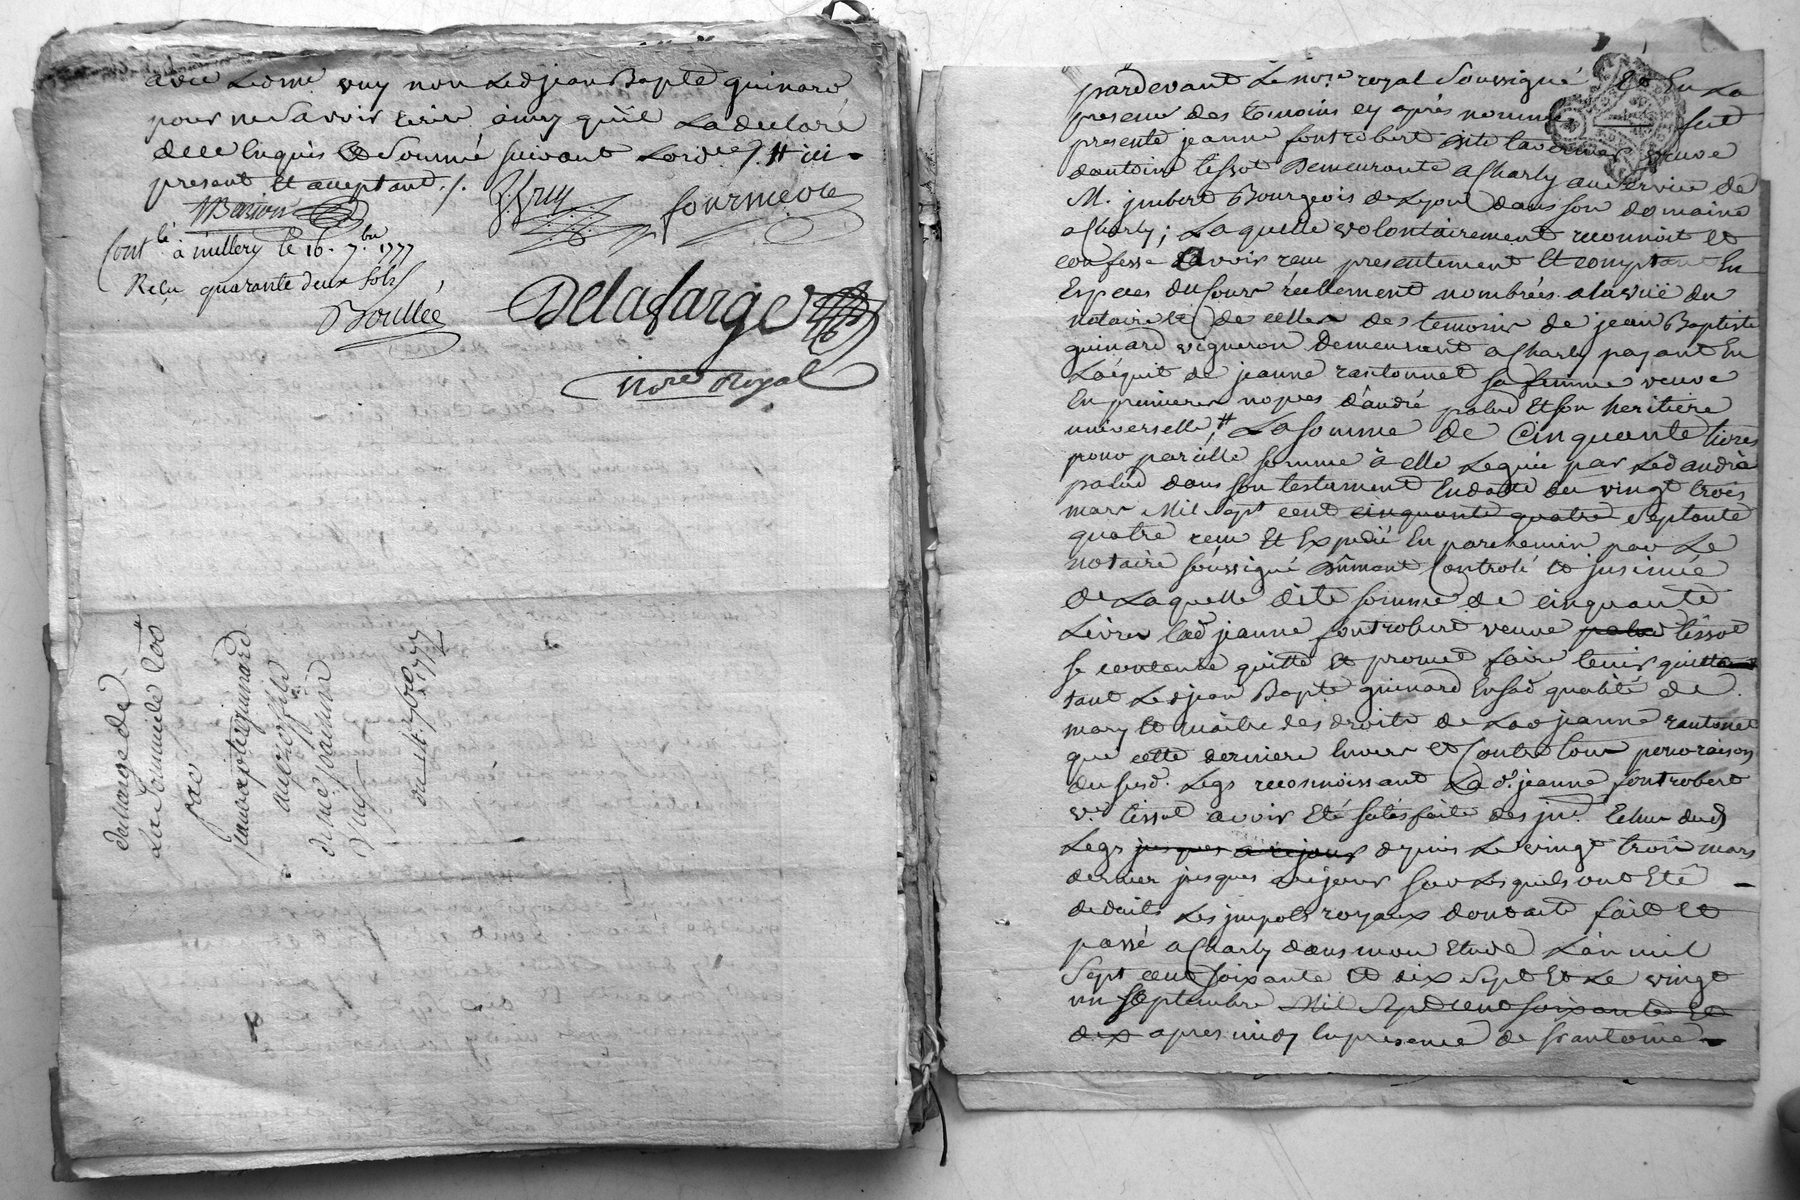 avec Led me. vuy non Led jean Bapte guinard
pour ne Savoir Ecrire ainsy quil La declaré
de ce Enquis et Sommé suivant Lorde /. # ici
present et acceptant ./.
JBasson
J. fruy
fourmeole
Contlé à millery le 16. 7.bre 1777
Reçu quarante deux sols
Boullée
Delafarge
nore Royal
dechargé de
La Somme de 200
par
jean baptiste guinard
au profit
de me jeannin
vuy
du 14 7bre 1777
pardevant Le nore. royal Soussigné et En La
presence des temoins cy après nommés fut
presente jeanne fontrobert dite tavernier veuve
dantoine tissot Demeurante a Charly au service de
M. jmbert Bourgeois de Lyon dans son domaine
a Charly; Laquelle volontairement reconnoit et
confesse avoir reçu presentement et comptant En
Especes du Cours réellement nombrées a la vüe du
notaire et de celles des temoins de jean Baptiste
guinard vigneron demeurant a Charly payant En
Lacquit de jeanne rantonnet sa femme veuve
En premieres nopces d'andré palud et son heritiere
universelle, # La somme de Cinquante livres
pour pareille somme à elle Leguée par Led andré
palud dans son testament En datte du vingt trois
mars Mil Sept cent cinquante quatre septante
quatre reçu et Expedié En parchemin par Le
notaire soussigné dûment Controlé et jnsinué
De Laquelle dite somme de cinquante
Livres lad jeanne fontrobert veuve palud tissot
se contente quitte et promet faire tenir quitte
tant Led jean Bapte guinard En sad qualité de
mary et maitre des droits de Lad jeanne rantonet
que cette derniere Envers et Contre tous pour raison
du susd. Legs reconnoissant Lad. jeanne fontrobert
ve tissot avoir Eté satisfaite des jnt. Echus dud
Legs jusques a ce jour depuis Le vingt trois mars
dernier jusques a ce jour sur Lesquels ont Eté
deduits Les jmpots royaux dont acte fait et
passé a Charly dans mon Etude L'an mil
Sept cent soixante et dix sept et Le vingt
un Septembre Mil Sept cent soixante et
dix apres midy En presence de sr antoine